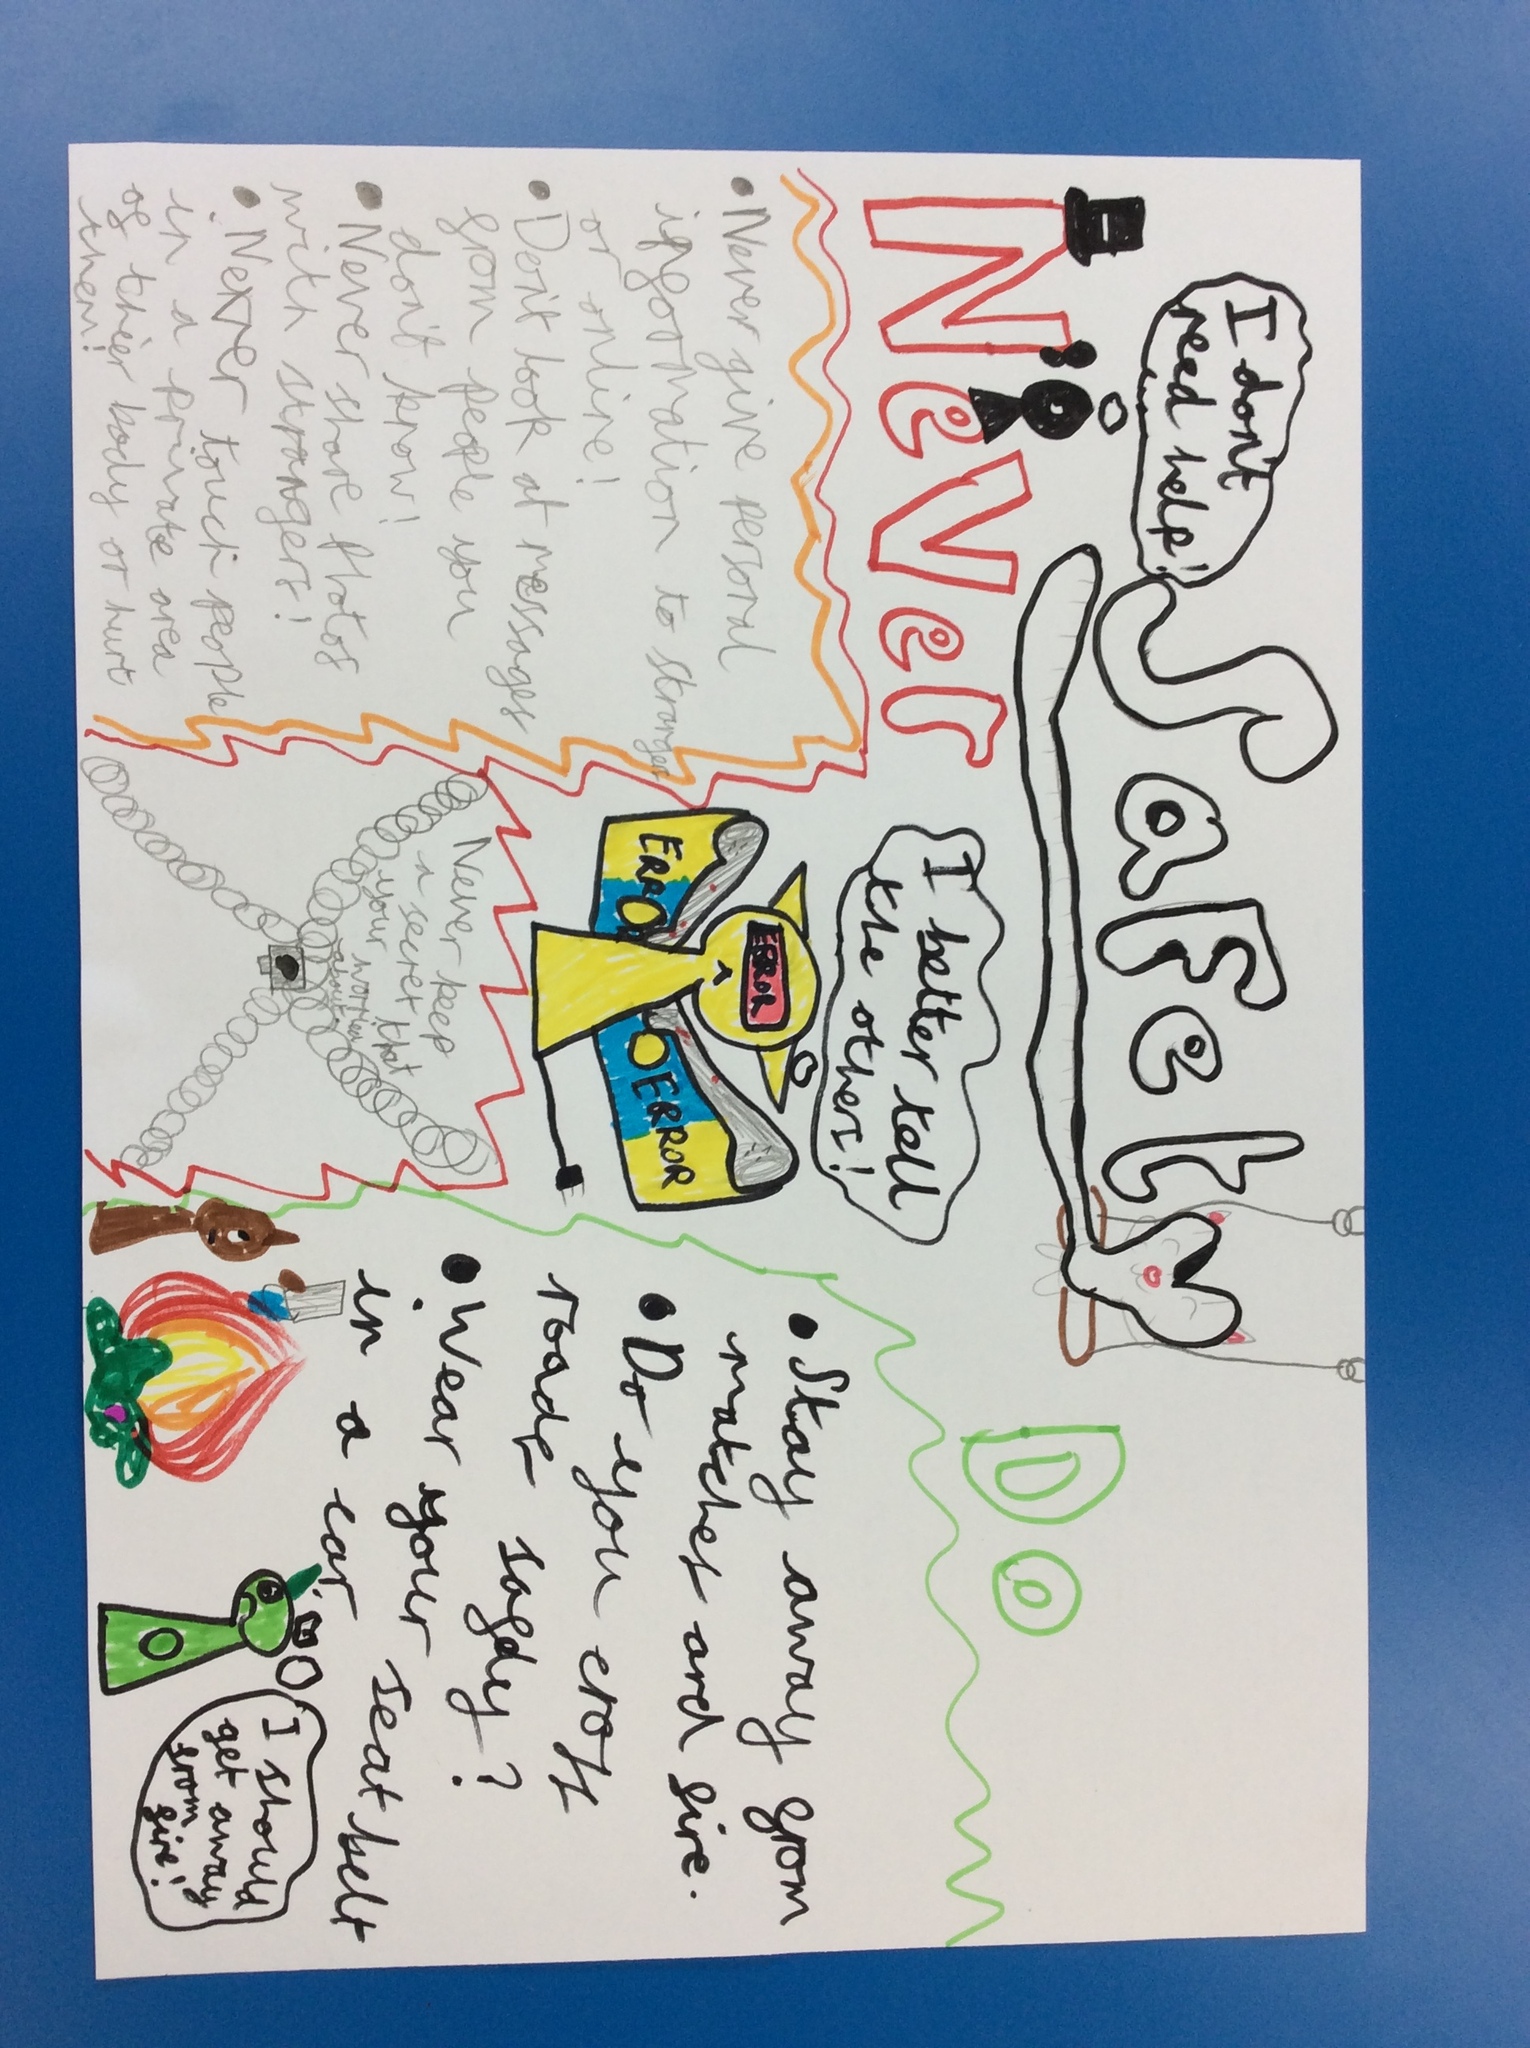 Safety
I don't
need help!
Never
• Never give personal
information to stranger
or online!
• Don't look at messages
from people you
don't know!
• Never share photos
with strangers!
• Never touch people
in a private area
of thier body or hurt
them!
I better tell
the others!
ERROR
ERRO
OERROR
Never keep
a secret that
your worried
about
Do
• Stay away from
matches and fire.
• Do you cross
roads safely?
• Wear your seat belt
in a car.
I should
get away
from
fire!